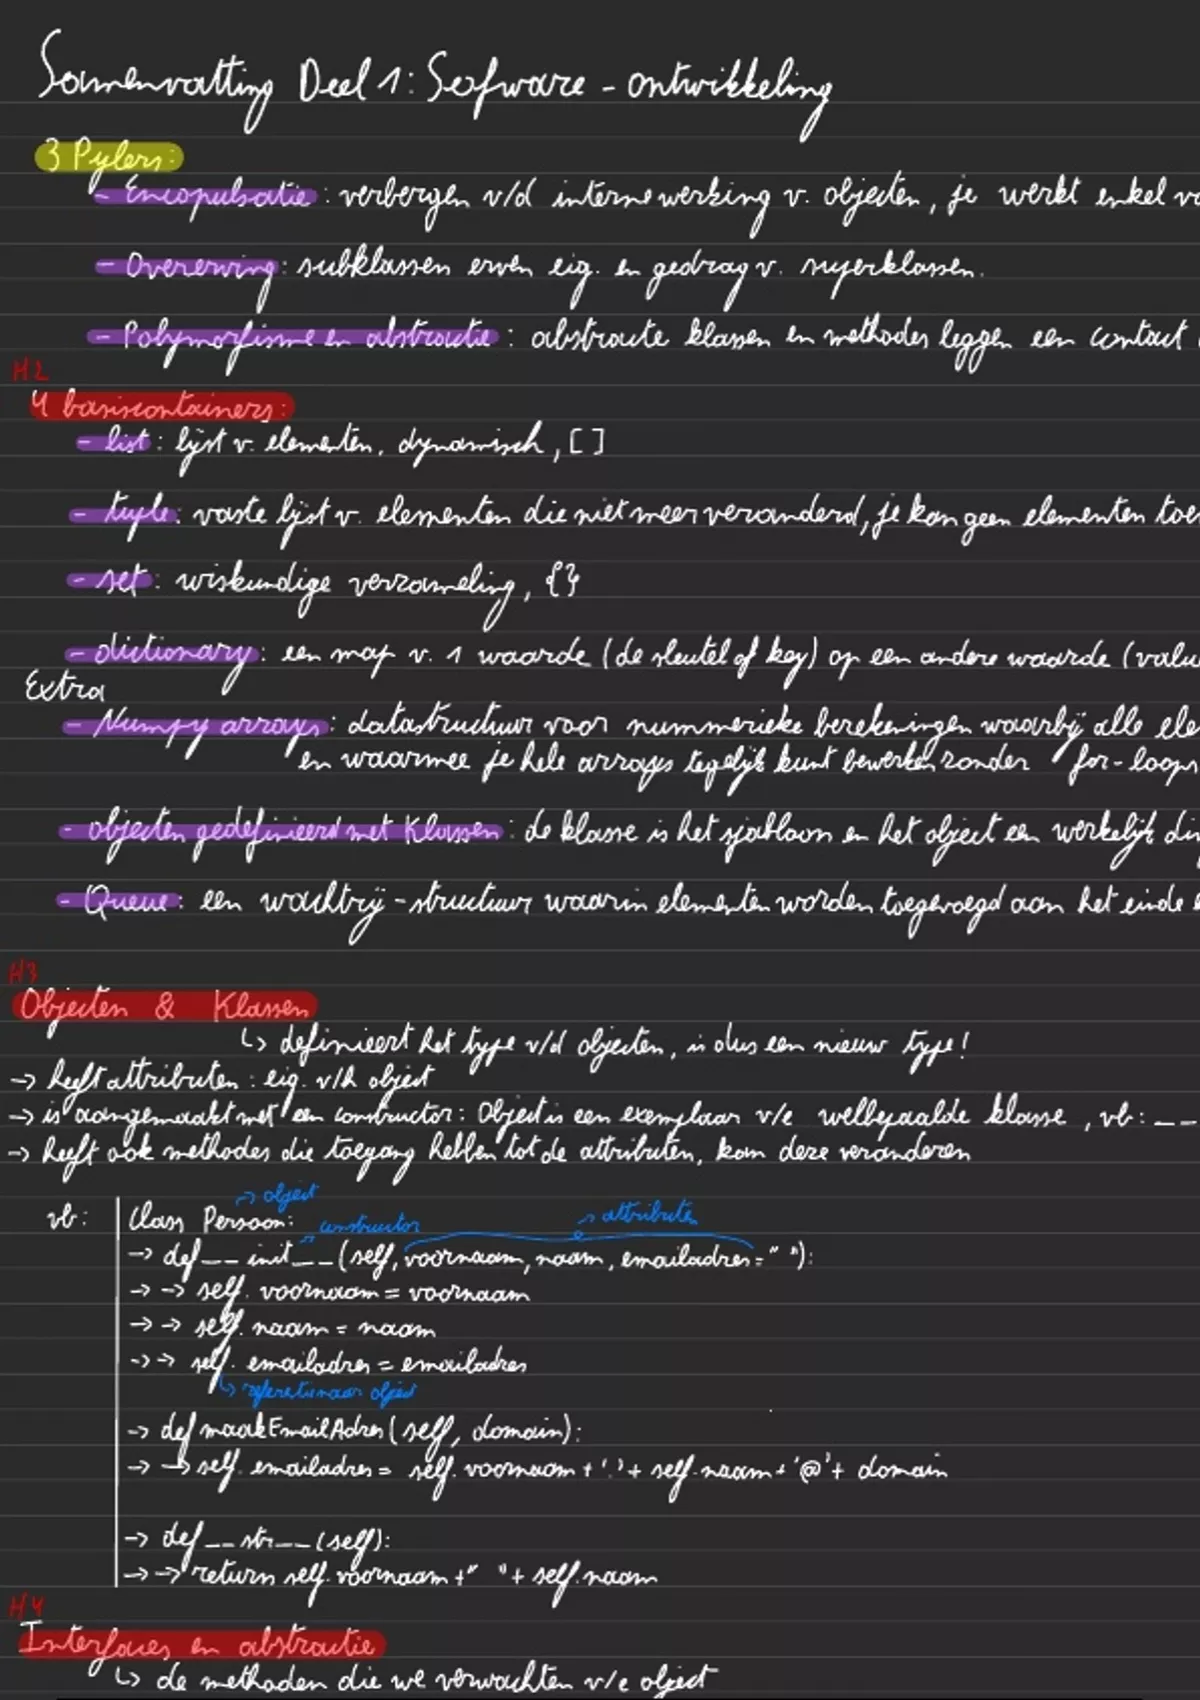 Samenvatting Deel 1: Sofware - ontwikkeling
3 Pylers:
- Encapulsatie: verbergen v/d interne werking v. objecten, je werkt enkel
- Overerving: subklassen erven eig. en gedrag v. superklassen.
- Polymorfisme en abstractie: abstracte klassen en methodes leggen een contact
H2
4 basiscontainers:
- list: lijst v. elementen, dynamisch, []
- tuple: vaste lijst v. elementen die niet meer veranderd, je kan geen elementen toe
- set: wiskundige verzameling, {}
- dictionary: een map v. 1 waarde (de sleutel of key) op een andere waarde (valu
Extra
- Numpy arrays: datastructuur voor nummerieke berekeningen waarbij alle ele
en waarmee je hele arrays tegelijk kunt bewerken zonder for-loops
- objecten gedefinieerd met klassen: de klasse is het sjabloon en het object een werkelijk di
- Queue: een wachtrij-structuur waarin elementen worden toegevoegd aan het einde e
H3
Objecten & Klassen
↳ definieert het type v/d objecten, is dus een nieuw type!
→ heeft attributen: eig. v/h object
→ is aangemaakt met een constructor: Object is een exemplaar v/e welbepaalde klasse, vb: __
→ heeft ook methodes die toegang hebben tot de attributen, kan deze veranderen
→ object
vb: Class Persoon: → constructor → attributen
→ def __init__(self, voornaam, naam, emailadres=" "):
→ → self.voornaam = voornaam
→ → self.naam = naam
→ → self.emailadres = emailadres
↳ referentie naar object
→ def maakEmailAdres(self, domain):
→ → self.emailadres = self.voornaam + '.' + self.naam + '@' + domain
→ def __str__(self):
→ → return self.voornaam + " " + self.naam
H4
Interfaces en abstractie
↳ de methoden die we verwachten v/e object